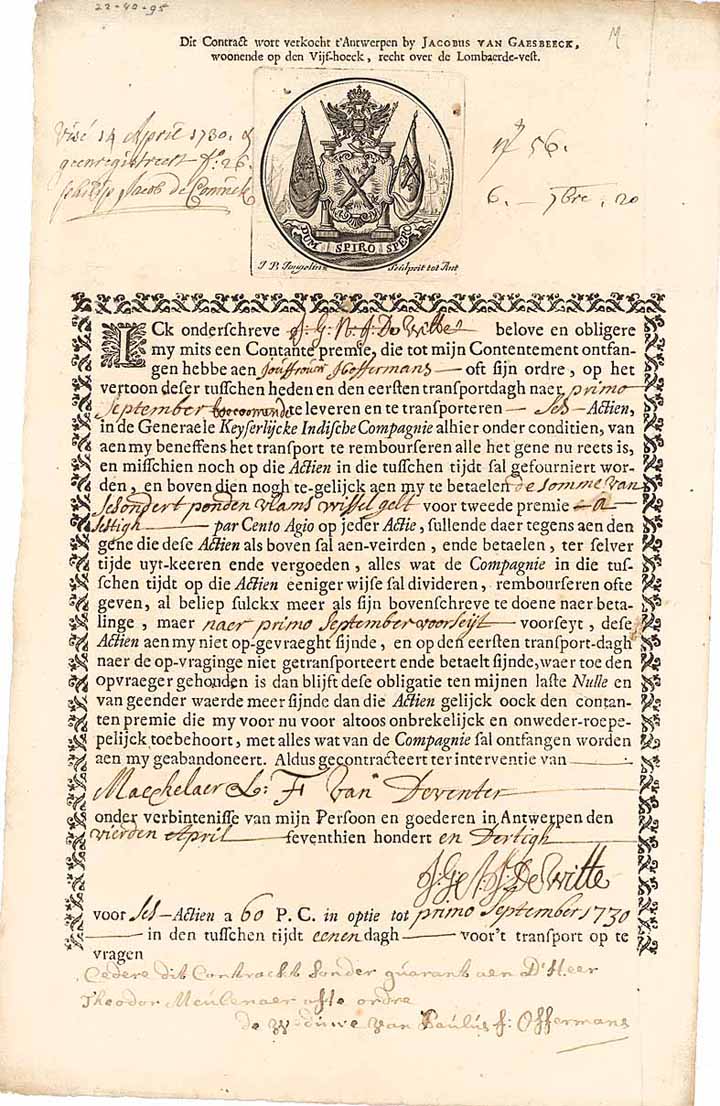 22-40-95
M
Dit Contract wort verkocht t'Antwerpen by JACOBUS VAN GAESBEECK,
woonende op den Vijf-hoeck, recht over de Lombaerde-vest.
Visé 14 April 1730. &
geenregistreert fo. 26.
Philip Jacob de Coninck
No 56.
6. — 7bre. 20
DUM SPIRO SPERO
I. B. Jongelinx Sculpsit tot Ant
ICk onderschreve J. G. N. J. De Witte belove en obligere
my mits een Contante premie, die tot mijn Contentement ontfan-
gen hebbe aen Jouffrouw Hoffermans — oft sijn ordre, op het
vertoon deser tusschen heden en den eersten transportdagh naer primo
September toecomende te leveren en te transporteren — Ses — Actien,
in de Generaele Keyserlijcke Indische Compagnie alhier onder conditien, van
aen my beneffens het transport te rembourseren alle het gene nu reets is,
en misschien noch op die Actien in die tusschen tijdt sal gefourniert wor-
den, en boven dien nogh te-gelijck aen my te betaelen de somme van
seshondert ponden vlams wissel gelt voor tweede premie a
sestigh — par Cento Agio op jeder Actie, sullende daer tegens aen den
gene die dese Actien als boven sal aen-veirden, ende betaelen, ter selver
tijde uyt-keeren ende vergoeden, alles wat de Compagnie in die tus-
schen tijdt op die Actien eeniger wijse sal divideren, rembourseren ofte
geven, al beliep sulckx meer als sijn bovenschreve te doene naer beta-
linge, maer naer primo September voorseijt — voorseyt, dese
Actien aen my niet op-gevraeght sijnde, en op den eersten transport-dagh
naer de op-vraginge niet getransporteert ende betaelt sijnde, waer toe den
opvraeger gehouden is dan blijft dese obligatie ten mijnen laste Nulle en
van geender waerde meer sijnde dan die Actien gelijck oock den contan-
ten premie die my voor nu voor altoos onbrekelijck en onweder-roepe-
pelijck toebehoort, met alles wat van de Compagnie sal ontfangen worden
aen my geabandoneert. Aldus gecontracteert ter interventie van —
Maeckelaer L: F van Deventer —
onder verbintenisse van mijn Persoon en goederen in Antwerpen den
vierden April — seventhien hondert en Dertigh —
J: G: N: J: De Witte
voor Ses — Actien a 60 P. C. in optie tot primo September 1730
— in den tusschen tijdt eenen dagh — voor't transport op te
vragen
Cedere dit Contrackt sonder guarant aen D'Heer
Theodor Meulenaer ofte ordre
de weduwe van Paulus f: Offermans